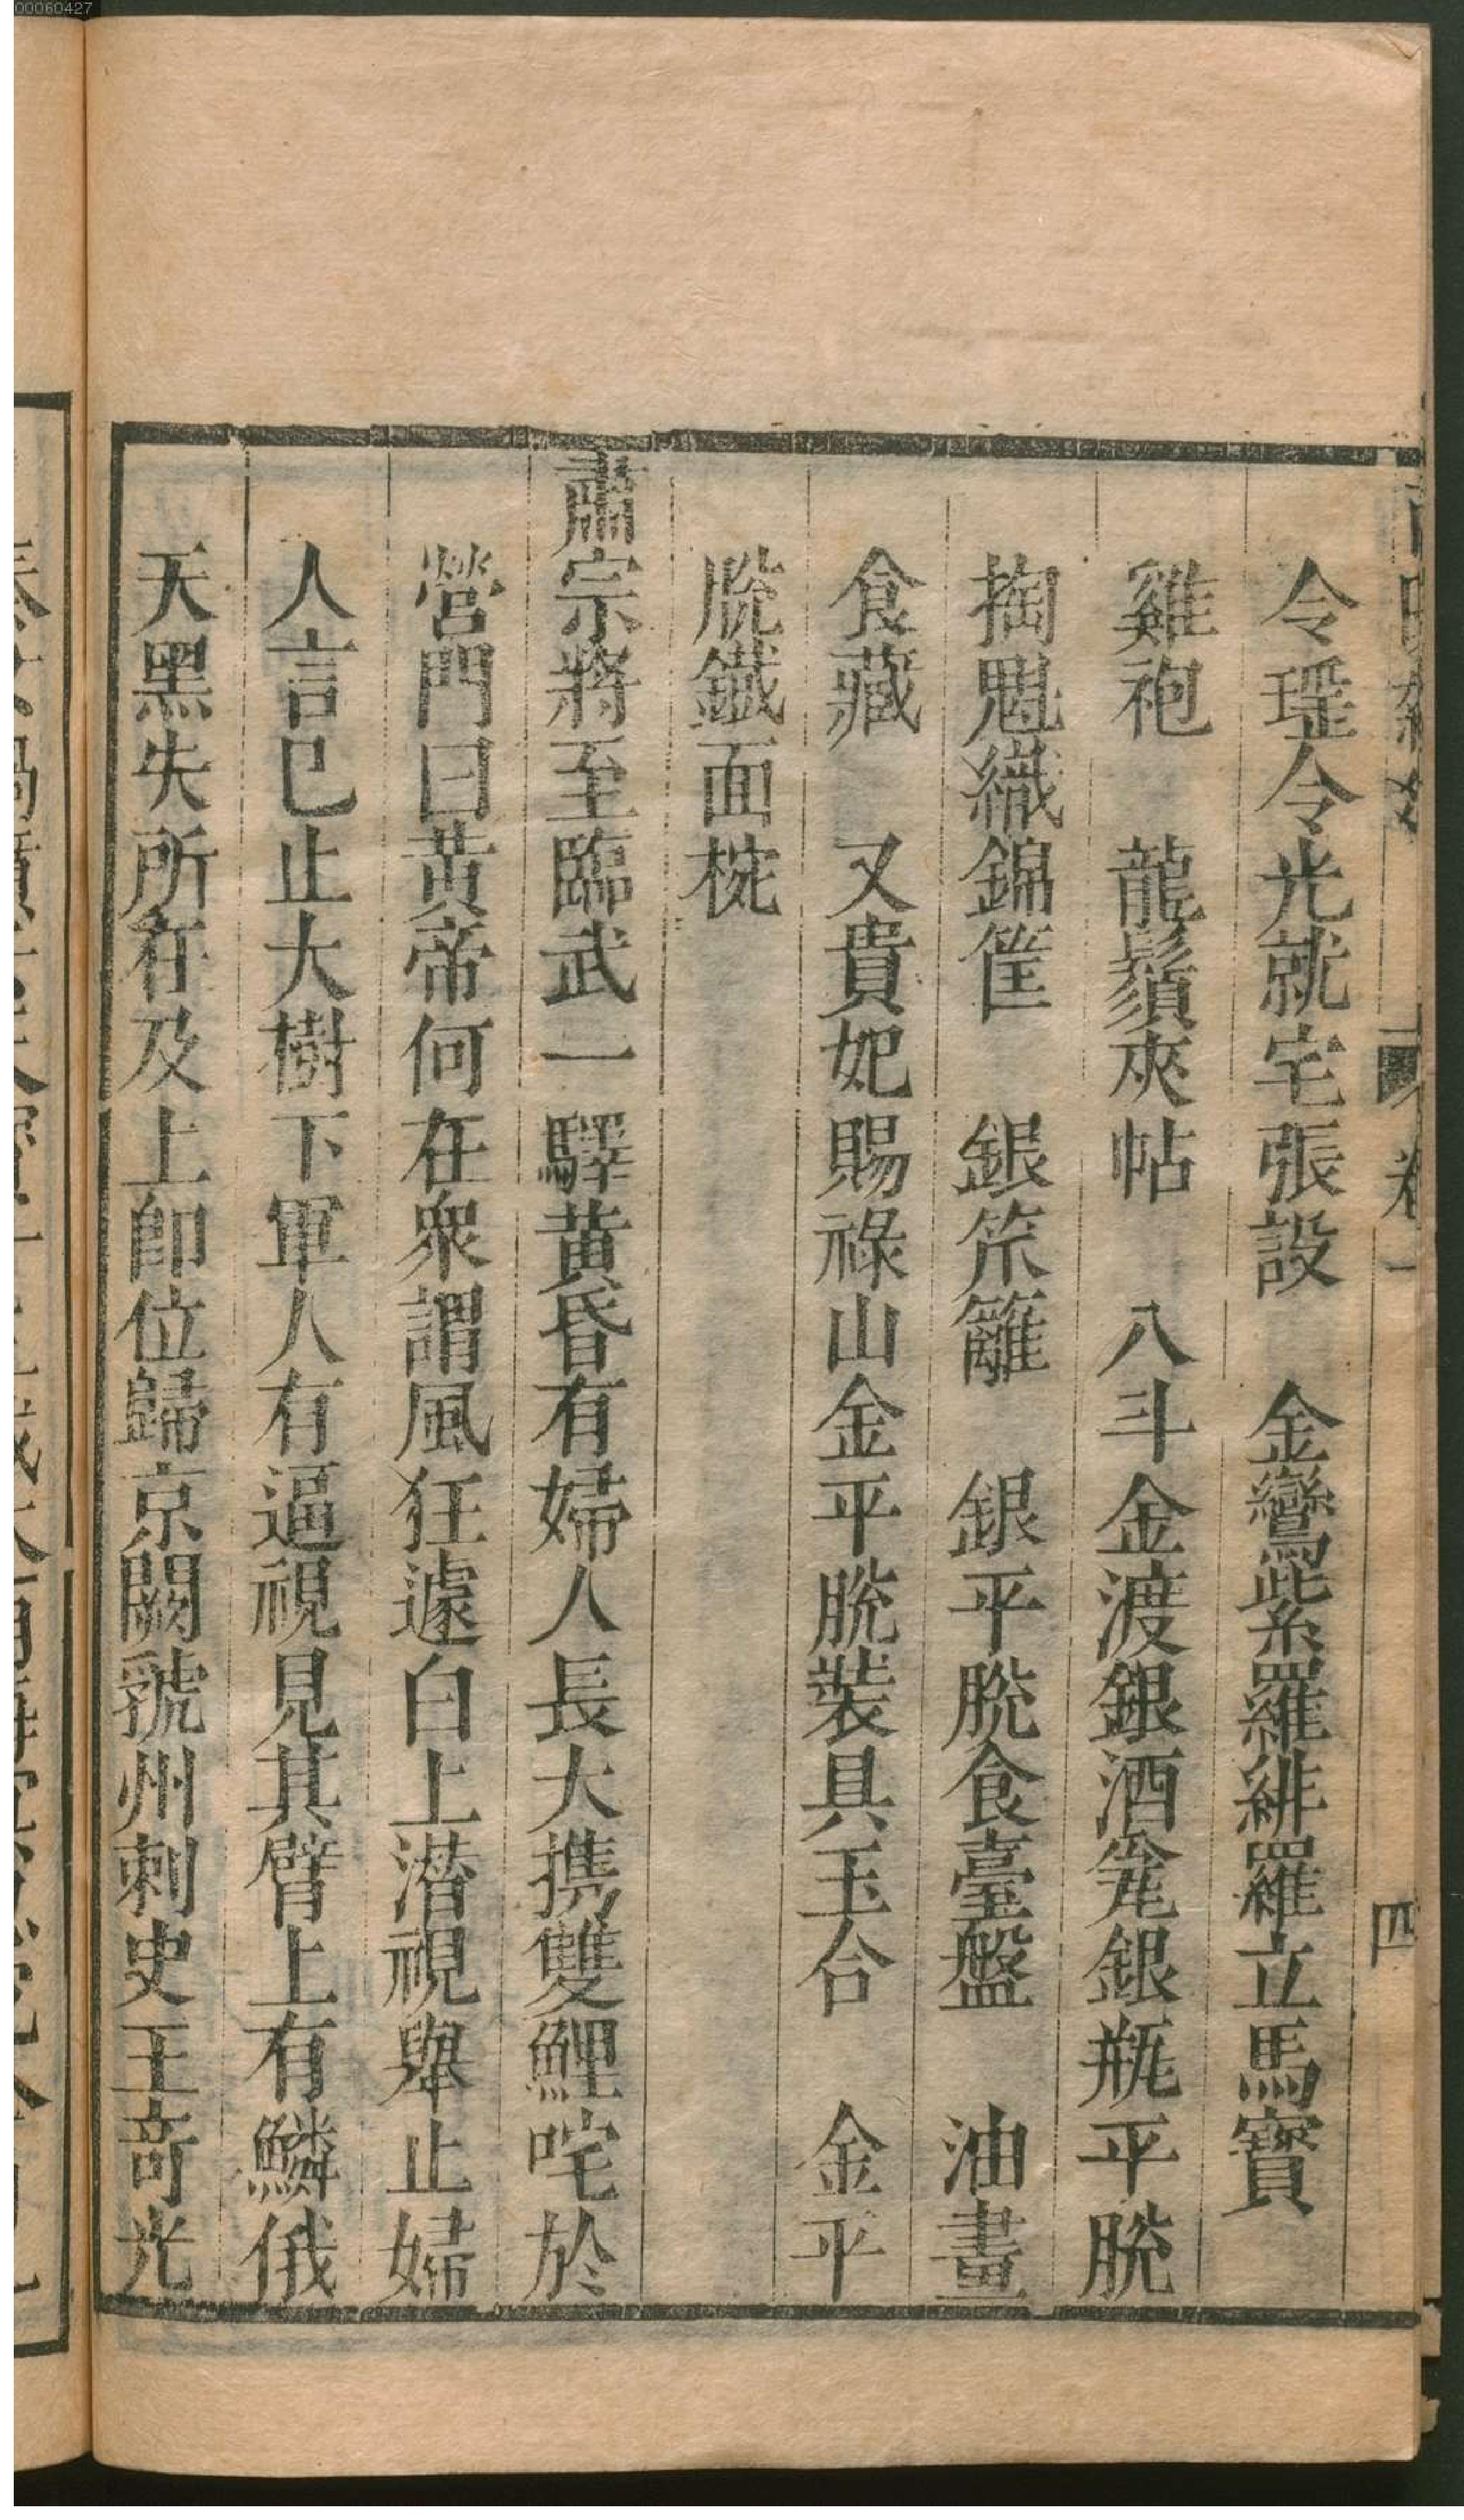 00060427
卷一
四
令瑶令光就宅張設　金鸞紫羅緋羅立馬寶
雞袍　龍鬚夾帖　八斗金渡銀酒瓮銀瓶平脫
掏魁織錦筐　銀笊籬　銀平脫食臺盤　油畫
食藏　又貴妃賜祿山金平脫裝具玉合　金平
脫鐵面椀
肅宗將至臨武一驛黃昏有婦人長大携雙鯉咤於
營門曰黃帝何在衆謂風狂遽白上潜視舉止婦
人言已止大樹下軍人有逼視見其臂上有鱗俄
天黑失所在及上卽位歸京闕虢州刺史王竒光